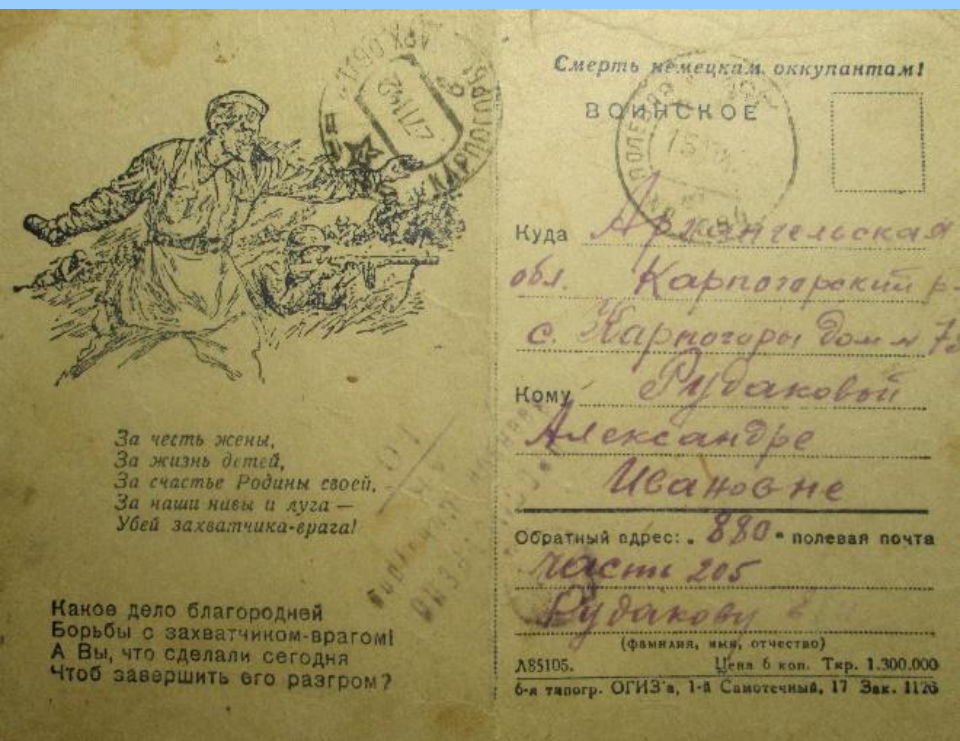 За честь жены,
За жизнь детей,
За счастье Родины своей,
За наши нивы и луга —
Убей захватчика-врага!
Какое дело благородней
Борьбы с захватчиком-врагом!
А Вы, что сделали сегодня
Чтоб завершить его разгром?
КАРПОГОРЫ
Смерть немецким оккупантам!
ВОИНСКОЕ
Куда Архангельская
обл. Карпогорский р-
с. Карпогоры Дом №
Кому Рудаковой
Александре
Ивановне
Обратный адрес: „ 880 " полевая почта
части 205
Рудакову
(фамилия, имя, отчество)
Л85105. Цена 6 коп. Тир. 1.300.000
6-я типогр. ОГИЗ'а, 1-й Самотечный, 17 Зак. 1126